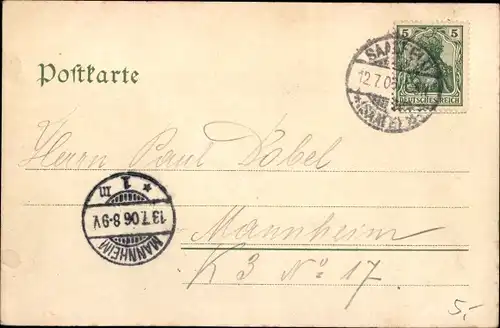 Postkarte
5 5
DEUTSCHES REICH
12.7.06
Herrn Paul Dobel
1 m
13.7.06.8-9V.
MANNHEIM
Mannheim
K 3 No 17.
5.-